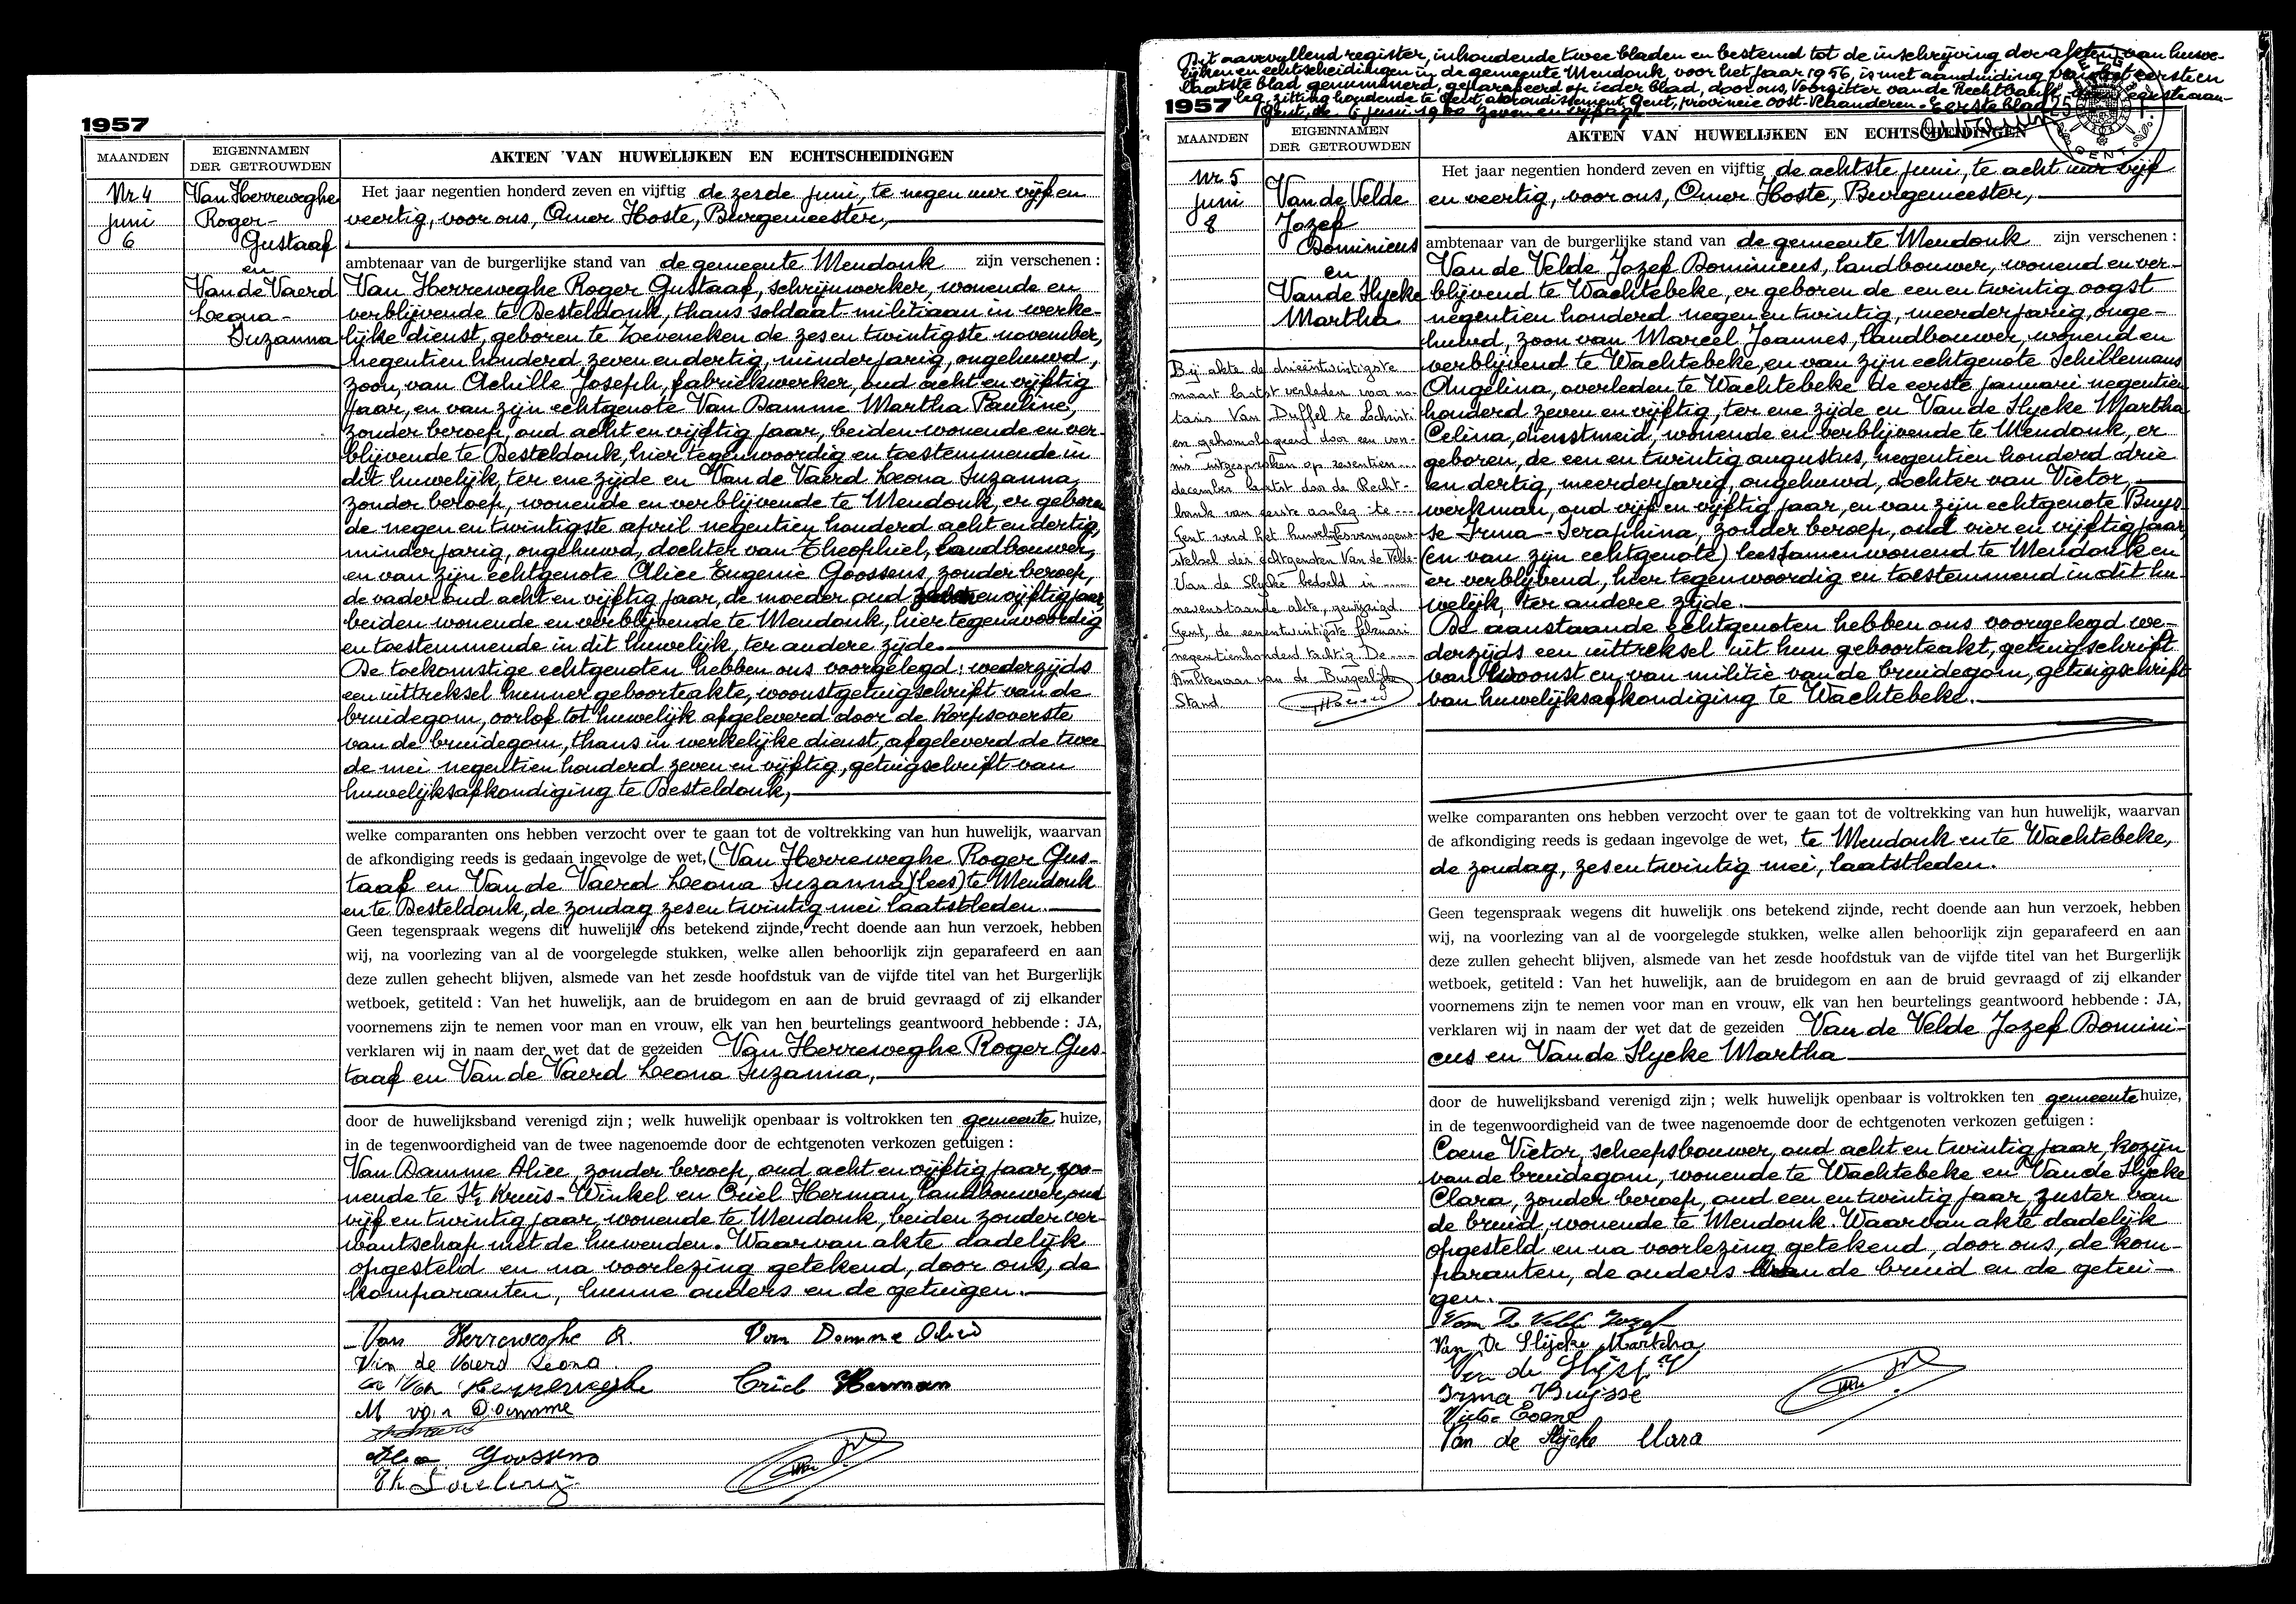 1957
MAANDEN
EIGENNAMEN
DER GETROUWDEN
AKTEN VAN HUWELIJKEN EN ECHTSCHEIDINGEN
Nr 4
juni
6
Van Herreweghe
Roger-
Gustaaf
en
Van de Vaerd
Leona-
Suzanna
Het jaar negentien honderd zeven en vijftig de zesde juni, te negen uur vijf en
veertig, voor ons, Omer Hoste, Burgemeester,
ambtenaar van de burgerlijke stand van de gemeente Mendonk zijn verschenen :
Van Herreweghe Roger Gustaaf, schrijnwerker, wonende en
verblijvende te Desteldonk, thans soldaat-militiaan in werke-
lijke dienst, geboren te Zeveneken de zes en twintigste november,
negentien honderd zeven en dertig, minderjarig, ongehuwd,
zoon van Achille Joseph, fabriekwerker, oud acht en vijftig
jaar, en van zijn echtgenote Van Damme Martha Pauline,
zonder beroep, oud acht en vijftig jaar, beiden wonende en ver-
blijvende te Desteldonk, hier tegenwoordig en toestemmende in
dit huwelijk, ter ene zijde en Van de Vaerd Leona Suzanna,
zonder beroep, wonende en verblijvende te Mendonk, er geboren
de negen en twintigste april negentien honderd acht en dertig,
minderjarig, ongehuwd, dochter van Theophiel, landbouwer,
en van zijn echtgenote Alice Eugenie Goossens, zonder beroep,
de vader oud acht en vijftig jaar, de moeder oud en vijftig jaar,
beiden wonende en verblijvende te Mendonk, hier tegenwoordig
en toestemmende in dit huwelijk, ter andere zijde.
De toekomstige echtgenoten hebben ons voorgelegd: wederzijds
een uittreksel hunner geboorteakte, woonstgetuigschrift van de
bruidegom, oorlof tot huwelijk afgeleverd door de Korpsoverste
van de bruidegom, thans in werkelijke dienst, afgeleverd de twee
de mei negentien honderd zeven en vijftig, getuigschrift van
huwelijksafkondiging te Desteldonk,
welke comparanten ons hebben verzocht over te gaan tot de voltrekking van hun huwelijk, waarvan
de afkondiging reeds is gedaan ingevolge de wet, (Van Herreweghe Roger Gus-
taaf en Van de Vaerd Leona Suzanna) (lees) te Mendonk
en te Desteldonk, de zondag zes en twintig mei laatstleden.
Geen tegenspraak wegens dit huwelijk ons betekend zijnde, recht doende aan hun verzoek, hebben
wij, na voorlezing van al de voorgelegde stukken, welke allen behoorlijk zijn geparafeerd en aan
deze zullen gehecht blijven, alsmede van het zesde hoofdstuk van de vijfde titel van het Burgerlijk
wetboek, getiteld : Van het huwelijk, aan de bruidegom en aan de bruid gevraagd of zij elkander
voornemens zijn te nemen voor man en vrouw, elk van hen beurtelings geantwoord hebbende : JA,
verklaren wij in naam der wet dat de gezeiden Van Herreweghe Roger Gus-
taaf en Van de Vaerd Leona Suzanna,
door de huwelijksband verenigd zijn ; welk huwelijk openbaar is voltrokken ten gemeente huize,
in de tegenwoordigheid van de twee nagenoemde door de echtgenoten verkozen getuigen :
Van Damme Alice, zonder beroep, oud acht en vijftig jaar, wo-
nende te St. Kruis-Winkel en Criel Herman, landbouwer, oud
vijf en twintig jaar, wonende te Mendonk, beiden zonder ver-
wantschap met de huwenden. Waarvan akte dadelijk
opgesteld en na voorlezing getekend, door ons, de
komparanten, hunne ouders en de getuigen.
Van Herreweghe R. Van Damme Alice
Van de Vaerd Leona
Van Herreweghe Criel Herman
M van Damme
Goossens
Dit aanvullend register, inhoudende twee bladen en bestemd tot de inschrijving der akten van huwe-
lijken en echtscheidingen in de gemeente Mendonk voor het jaar 1956, is met aanduiding van het eerste en
laatste blad genummerd, geparafeerd op ieder blad, door ons, Voorzitter van de Rechtbank van eerste aan-
leg, zitting houdende te Gent, arrondissement Gent, provincie Oost-Vlaanderen. Eerste blad
Gent, de 6 juni 1900 zeven en vijftig
1957
GENT
MAANDEN
EIGENNAMEN
DER GETROUWDEN
AKTEN VAN HUWELIJKEN EN ECHTSCHEIDINGEN
Nr 5
juni
8
Van de Velde
Jozef
Dominicus
en
Van de Slycke
Martha
Bij akte de drieëntwintigste
maart laatst verleden voor no-
taris Van Duffel te Lochristi
en gehomologeerd door een von-
nis uitgesproken op zeventien
december laatst door de Recht-
bank van eerste aanleg te
Gent werd het huwelijksvermogens-
stelsel der echtgenoten Van de Velde-
Van de Slycke bedoeld in
nevenstaande akte, gewijzigd.
Gent, de eenentwintigste februari
negentienhonderd tachtig De
Ambtenaar van de Burgerlijke
Stand
Het jaar negentien honderd zeven en vijftig de achtste juni, te acht uur vijf
en veertig, voor ons, Omer Hoste, Burgemeester,
ambtenaar van de burgerlijke stand van de gemeente Mendonk zijn verschenen :
Van de Velde Jozef Dominicus, landbouwer, wonend en ver-
blijvend te Wachtebeke, er geboren de een en twintig oogst
negentien honderd negen en twintig, meerderjarig, onge-
huwd, zoon van Marcel Joannes, landbouwer, wonend en
verblijvend te Wachtebeke, en van zijn echtgenote Schillemans
Angelina, overleden te Wachtebeke de eerste januari negentien
honderd zeven en vijftig, ter ene zijde en Van de Slycke Martha
Celina, dienstmeid, wonende en verblijvende te Mendonk, er
geboren, de een en twintig augustus, negentien honderd drie
en dertig, meerderjarig, ongehuwd, dochter van Victor,
werkman, oud vijf en vijftig jaar, en van zijn echtgenote Buys-
se Irma-Seraphina, zonder beroep, oud vier en vijftig jaar,
(en van zijn echtgenote) lees samenwonend te Mendonk en
er verblijvend, hier tegenwoordig en toestemmend in dit hu-
welijk, ter andere zijde.
De aanstaande echtgenoten hebben ons voorgelegd we-
derzijds een uittreksel uit hun geboorteakt, getuigschrift
van woonst en van militie van de bruidegom, getuigschrift
van huwelijksafkondiging te Wachtebeke.
welke comparanten ons hebben verzocht over te gaan tot de voltrekking van hun huwelijk, waarvan
de afkondiging reeds is gedaan ingevolge de wet, te Mendonk en te Wachtebeke,
de zondag, zes en twintig mei, laatstleden.
Geen tegenspraak wegens dit huwelijk ons betekend zijnde, recht doende aan hun verzoek, hebben
wij, na voorlezing van al de voorgelegde stukken, welke allen behoorlijk zijn geparafeerd en aan
deze zullen gehecht blijven, alsmede van het zesde hoofdstuk van de vijfde titel van het Burgerlijk
wetboek, getiteld : Van het huwelijk, aan de bruidegom en aan de bruid gevraagd of zij elkander
voornemens zijn te nemen voor man en vrouw, elk van hen beurtelings geantwoord hebbende : JA,
verklaren wij in naam der wet dat de gezeiden Van de Velde Jozef Domini-
cus en Van de Slycke Martha
door de huwelijksband verenigd zijn ; welk huwelijk openbaar is voltrokken ten gemeente huize,
in de tegenwoordigheid van de twee nagenoemde door de echtgenoten verkozen getuigen :
Coene Victor, scheepsbouwer, oud acht en twintig jaar, kozijn
van de bruidegom, wonende te Wachtebeke en Van de Slycke
Clara, zonder beroep, oud een en twintig jaar, zuster van
de bruid, wonende te Mendonk. Waarvan akte dadelijk
opgesteld en na voorlezing getekend, door ons, de kom-
paranten, de ouders van de bruid en de getui-
gen.
Van De Velde Jozef
Van De Slijcke Martha
Van de
Irma Buijsse
Victor Coene
Van de Slijcke Clara